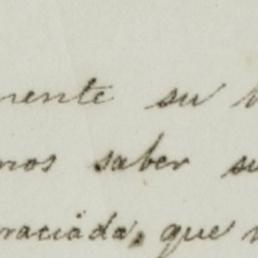 mente su
mos saber su
raciada, que